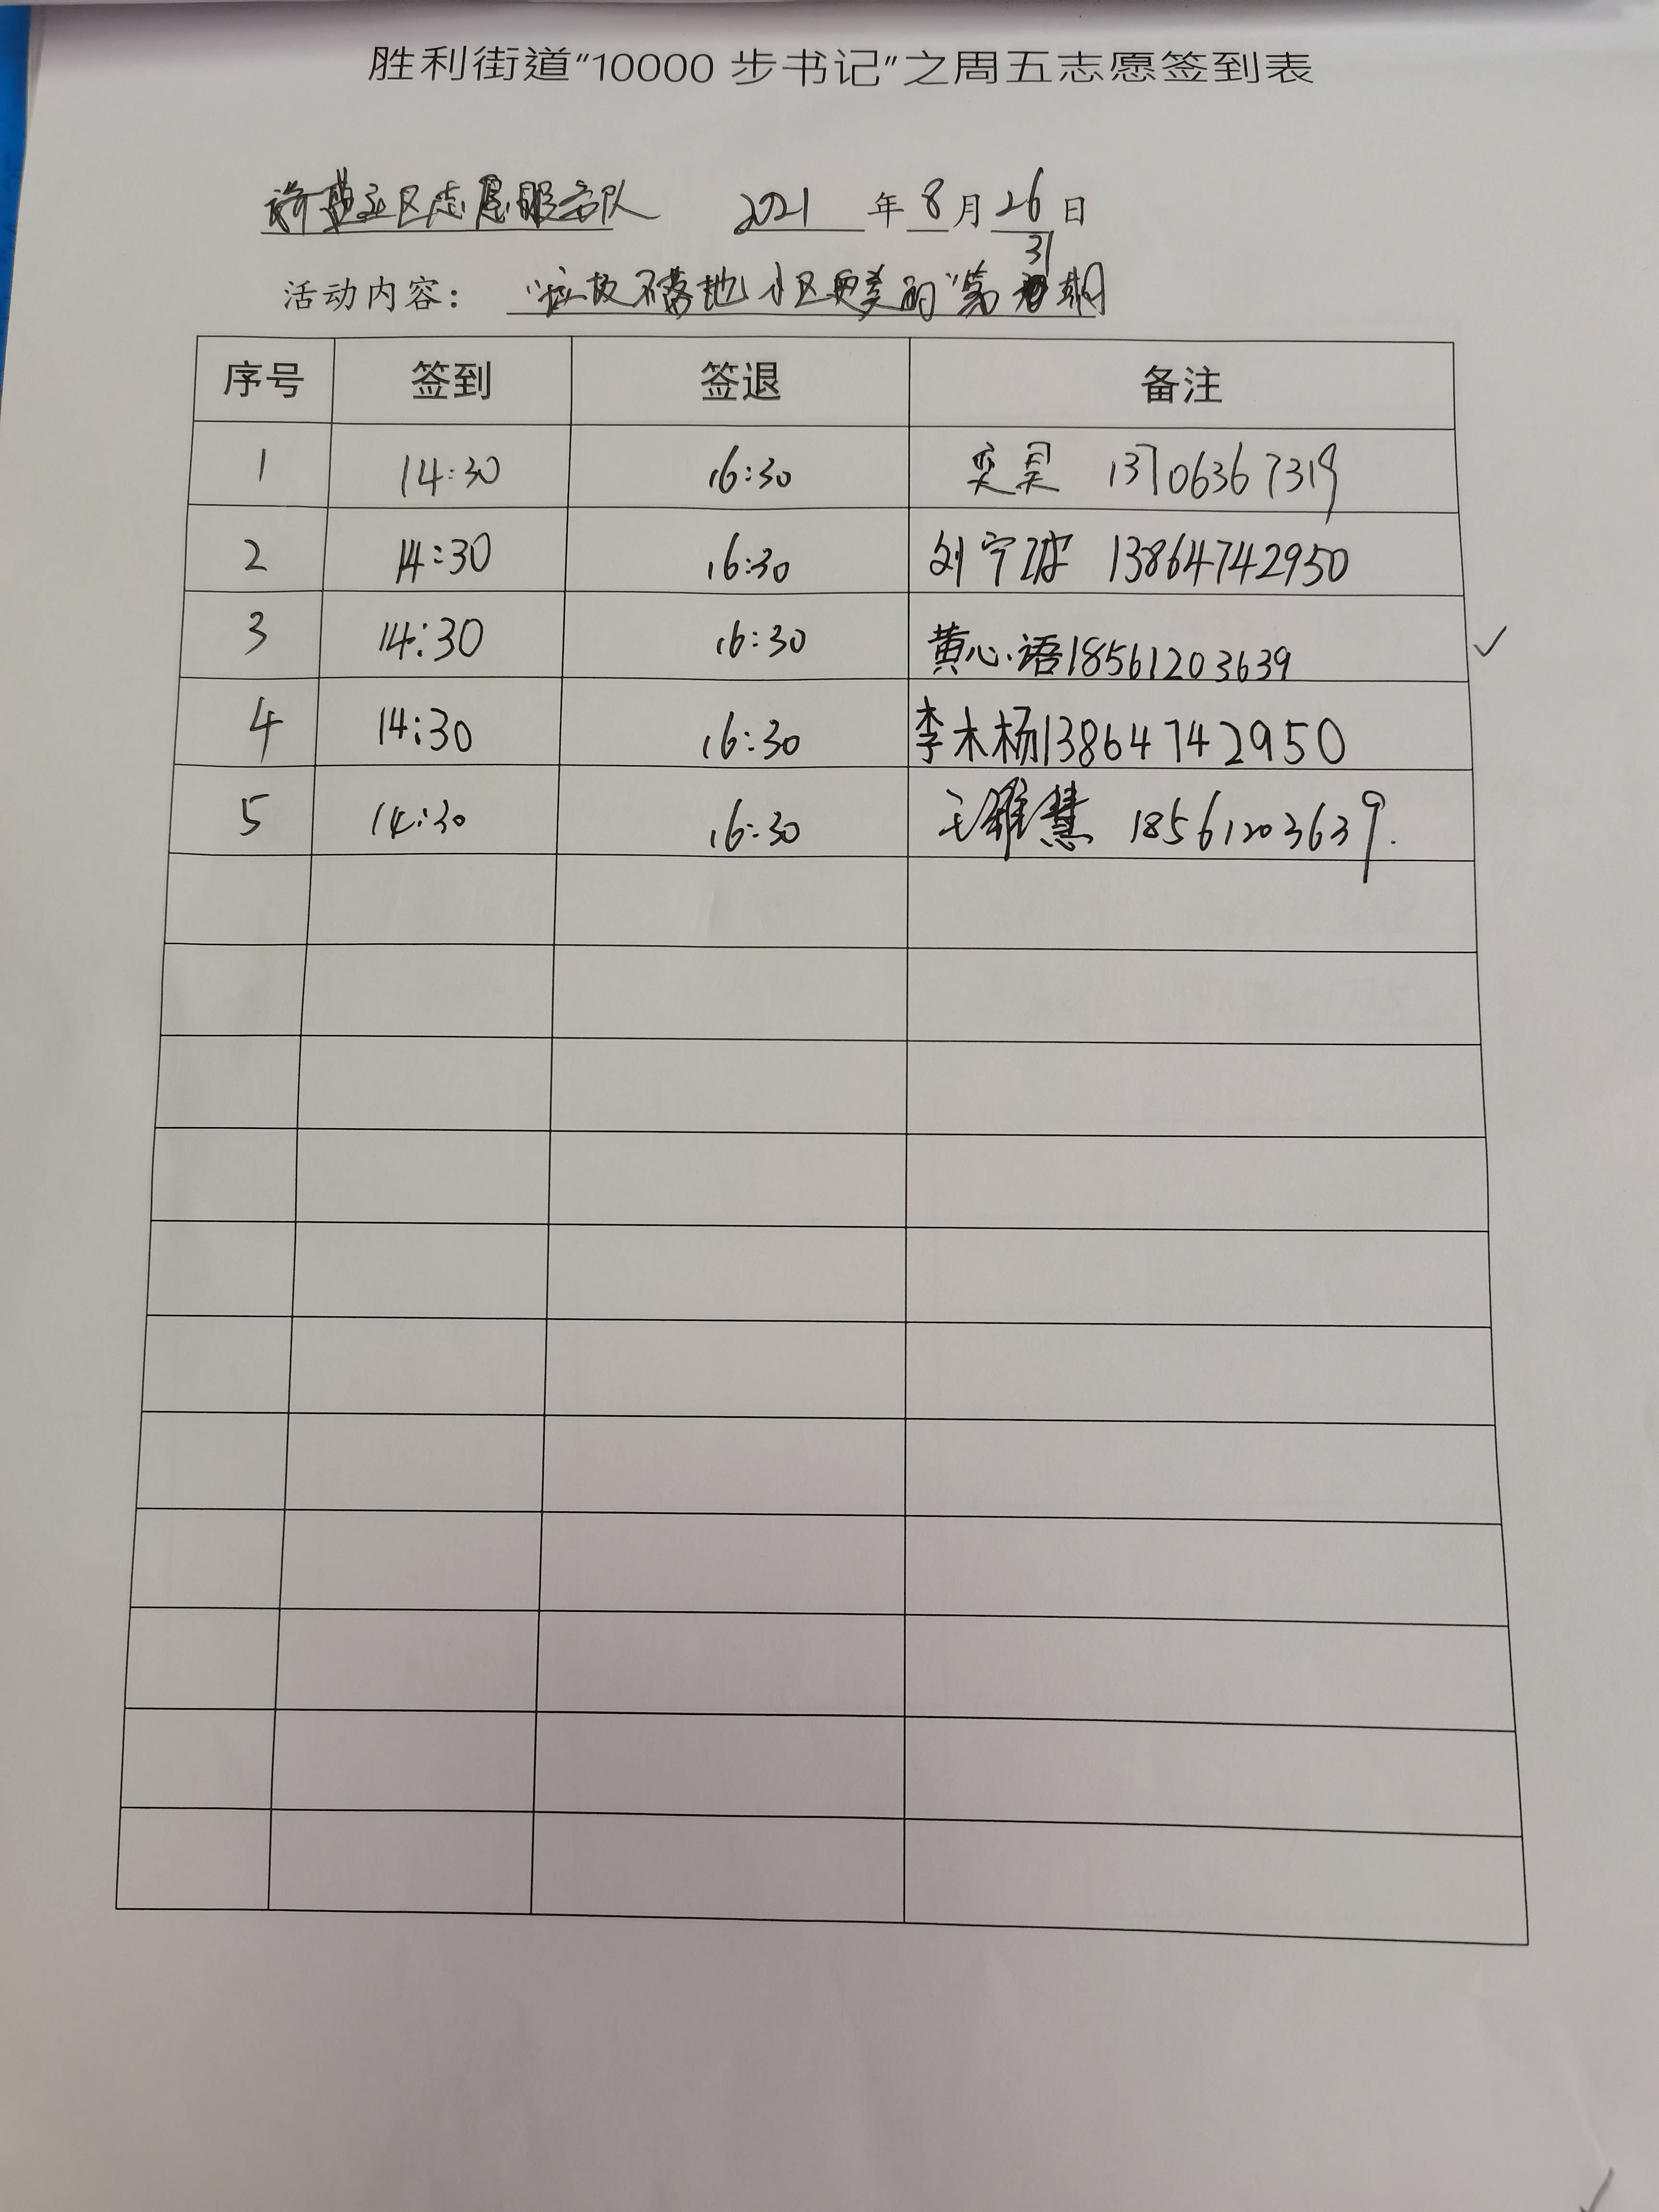 胜利街道“10000 步书记”之周五志愿签到表
社区志愿服务队 2021 年 8 月 26 日
活动内容： “垃圾不落地 小区更美丽”第 31 期
序号 签到 签退 备注
1 14:30 16:30 奕昊 13706367319
2 14:30 16:30 刘宁 13864742950
3 14:30 16:30 黄心语 18561203639 ✓
4 14:30 16:30 李木杨 13864742950
5 14:30 16:30 王 慧 18561203639.